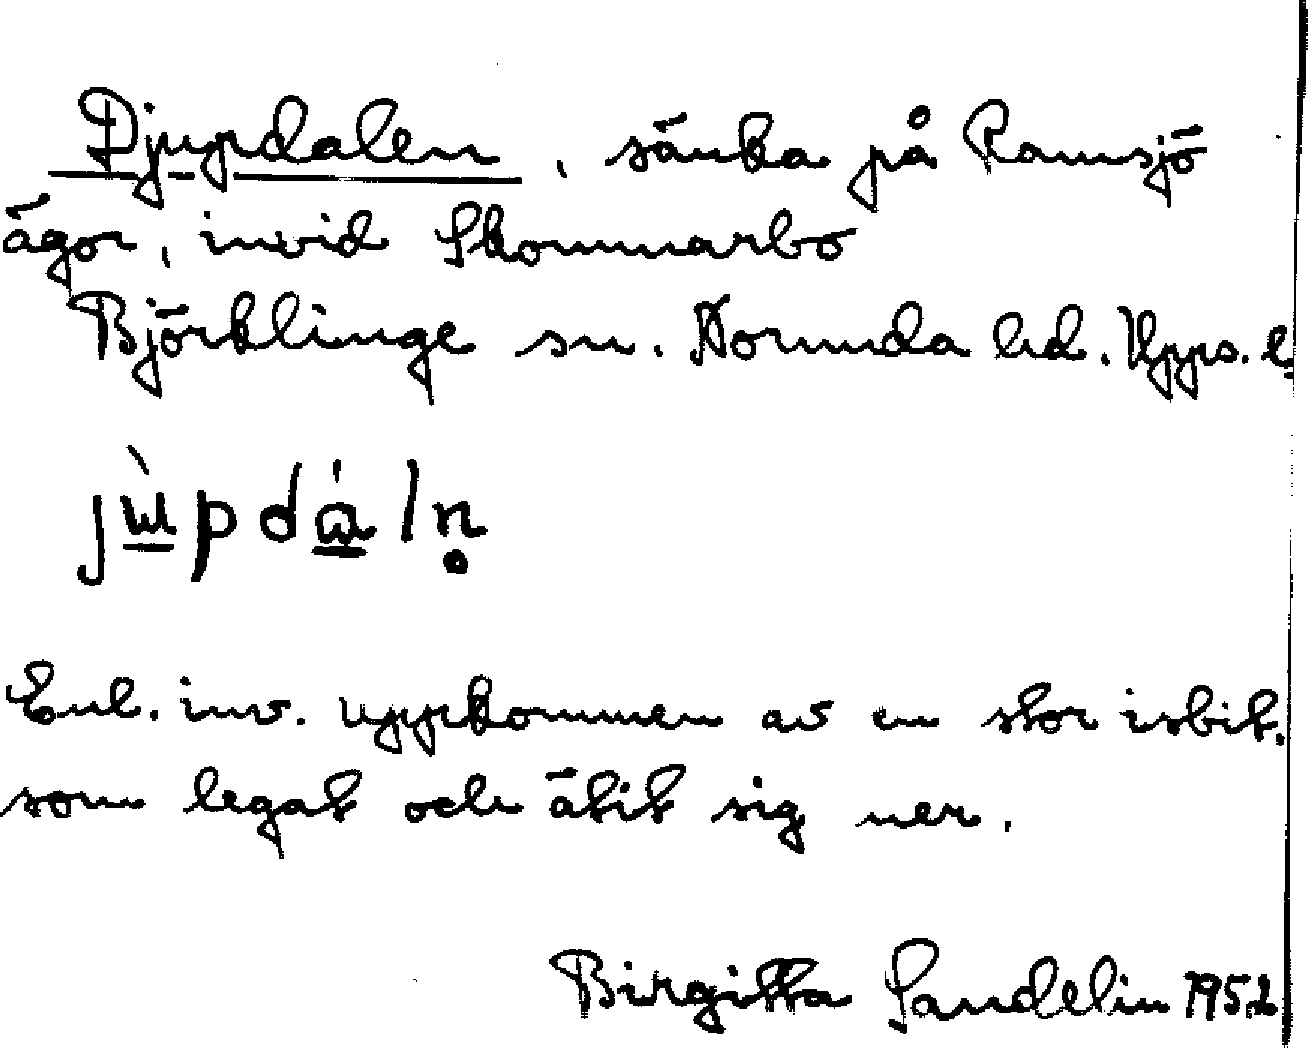 Djupdalen, sänka på Ramsjö
ägor, invid Skommarbo
Björklinge sn. Norunda hd. Upps. l.
jùpdáln
Enl. inv. uppkommen av en stor isbit,
som legat och ätit sig ner.
Birgitta Sandelin 1952